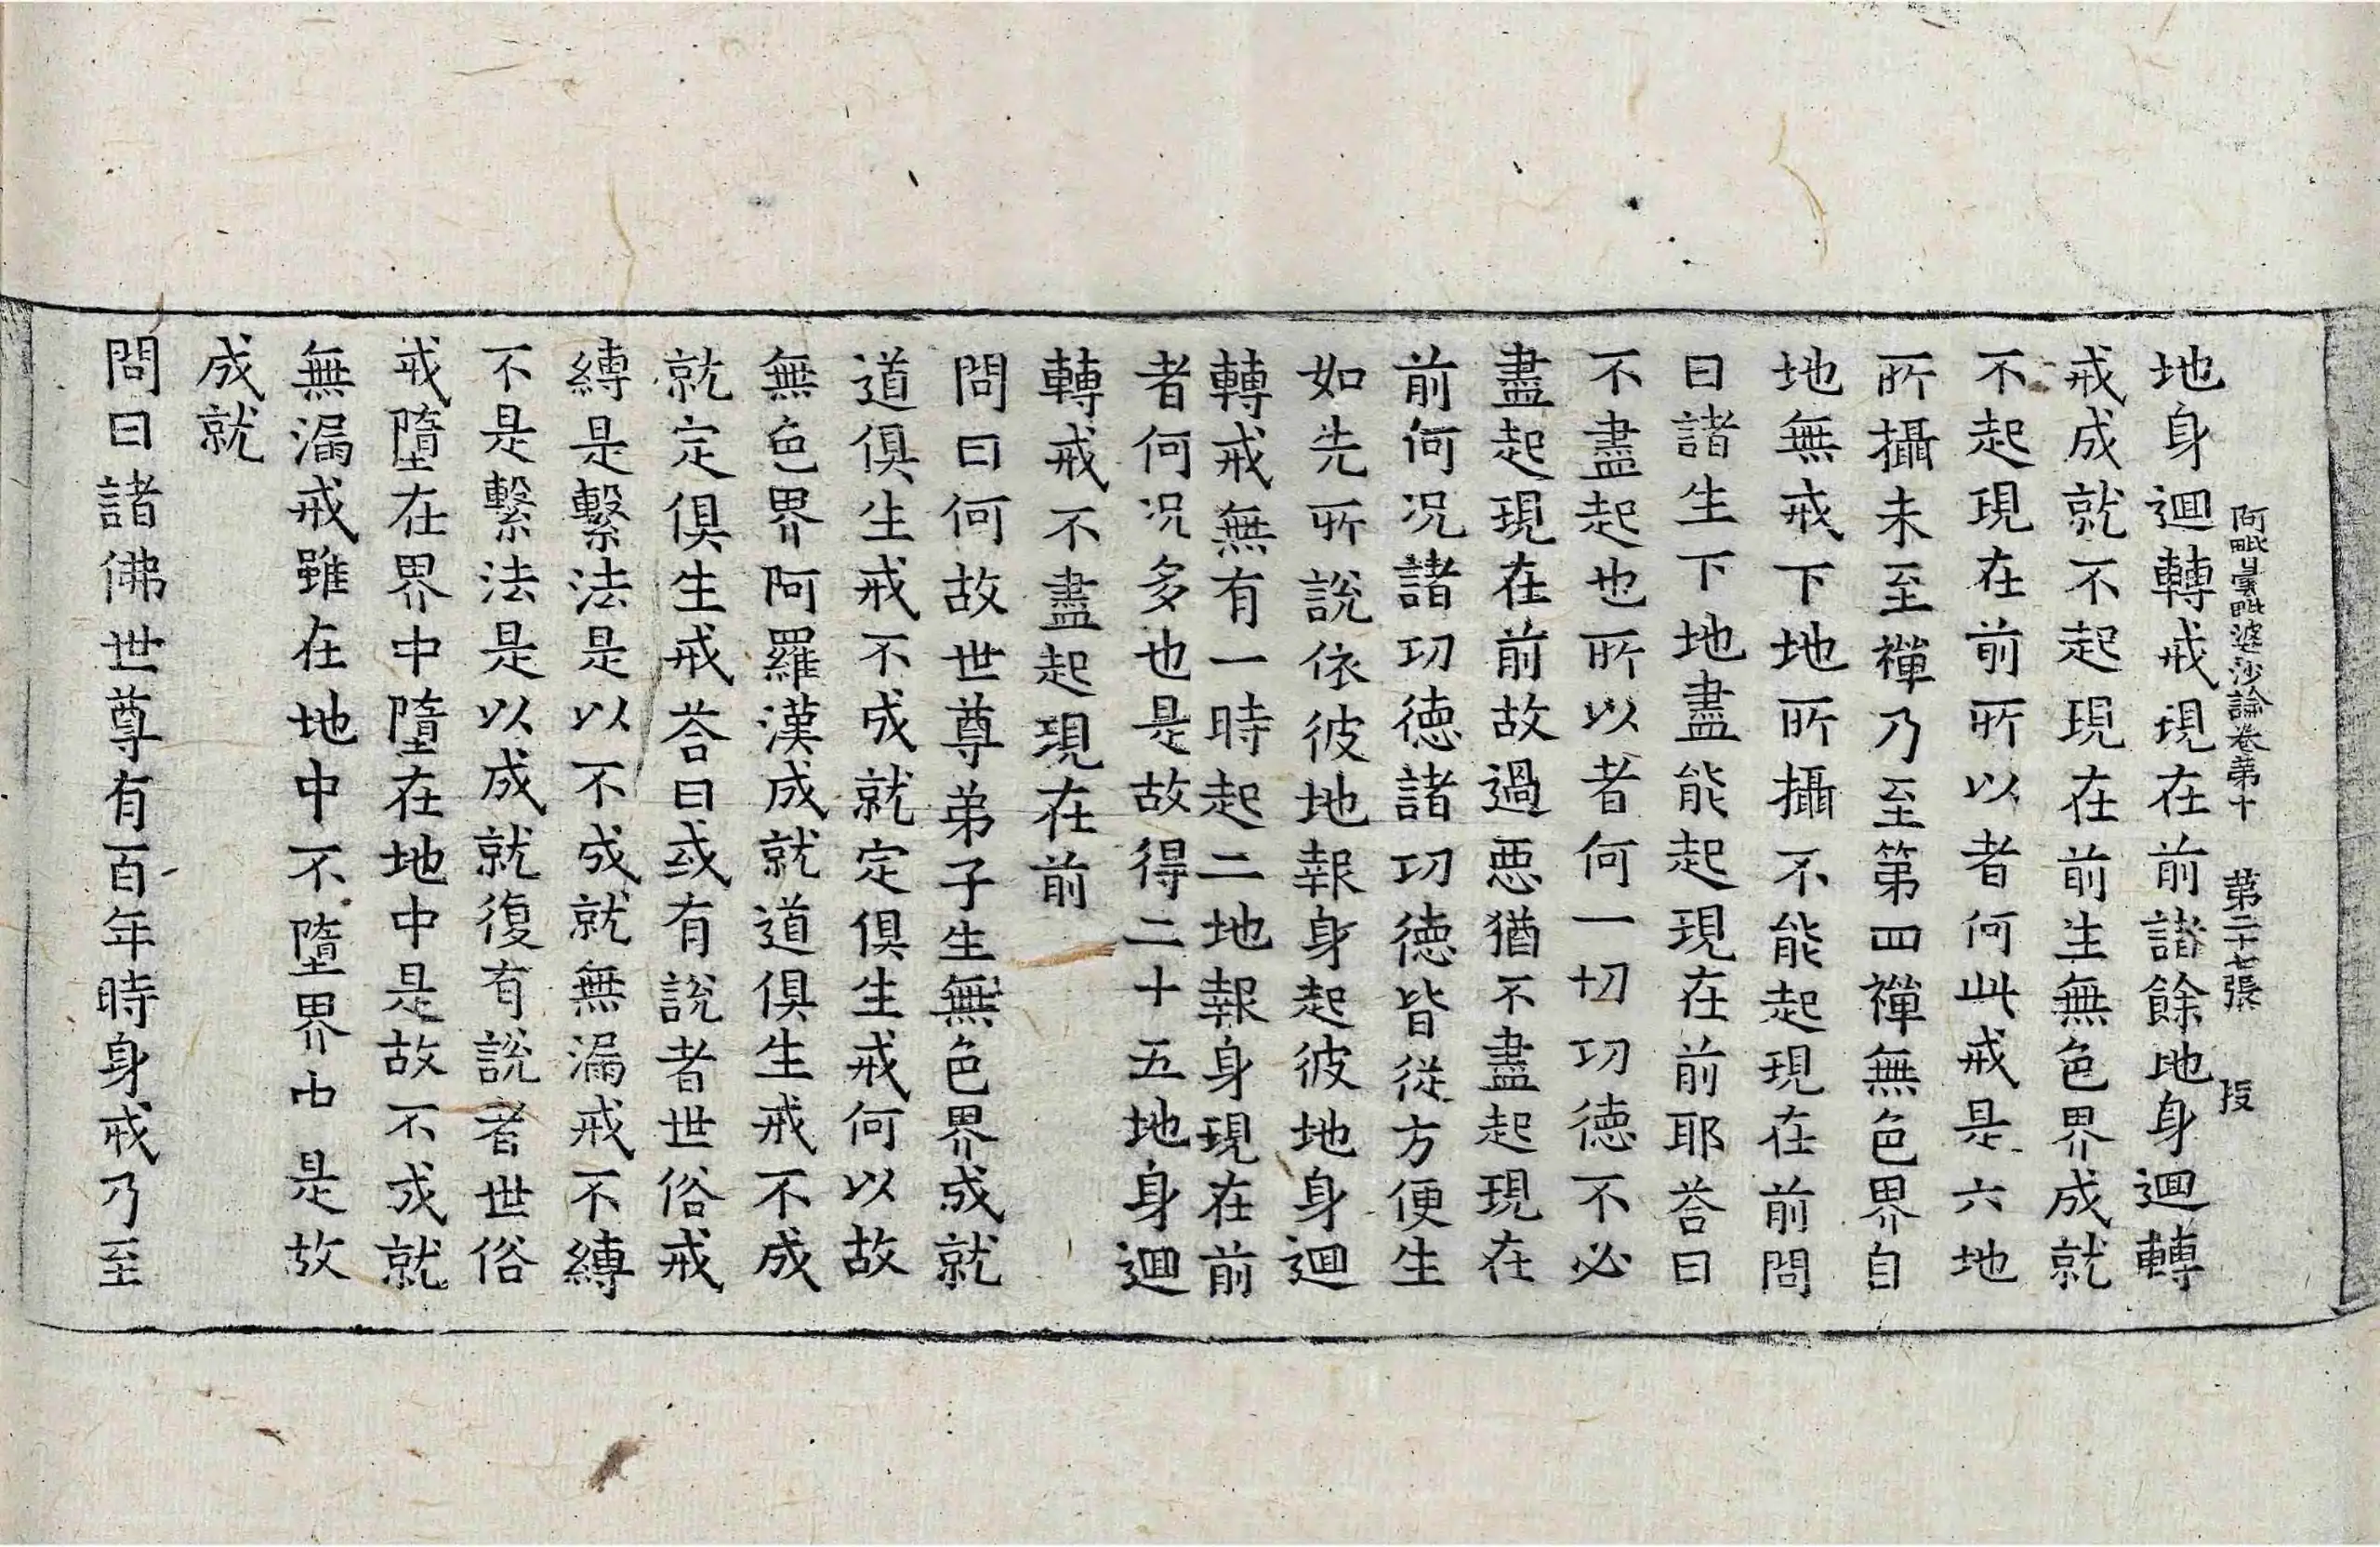 阿毗曇毗婆沙論卷第十　第二十七張　投
地身迴轉戒現在前諸餘地身迴轉
戒成就不起現在前生無色界成就
不起現在前所以者何此戒是六地
所攝未至禪乃至第四禪無色界自
地無戒下地所攝不能起現在前問
曰諸生下地盡能起現在前耶荅曰
不盡起也所以者何一切功德不必
盡起現在前故過惡猶不盡起現在
前何況諸功德諸功德皆從方便生
如先所說依彼地報身起彼地身迴
轉戒無有一時起二地報身現在前
者何況多也是故得二十五地身迴
轉戒不盡起現在前
問曰何故世尊弟子生無色界成就
道俱生戒不成就定俱生戒何以故
無色界阿羅漢成就道俱生戒不成
就定俱生戒荅曰或有說者世俗戒
縛是繫法是以不成就無漏戒不縛
不是繫法是以成就復有說者世俗
戒墮在界中墮在地中是故不成就
無漏戒雖在地中不墮界中是故
成就
問曰諸佛世尊有百年時身戒乃至